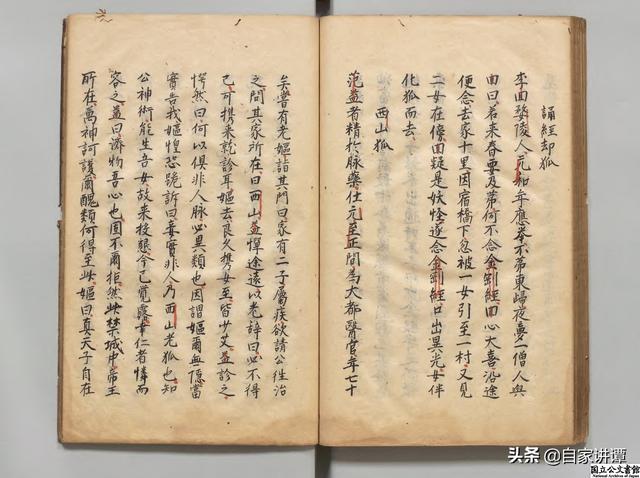 誦經却狐
李回陵人元和年應舉不第東歸夜夢一僧人與
回曰若来春要及第何不念金剛經回心大喜沿途
便念去家十里因宿橋下忽被一女引至一村又見
二女在傍回疑是妖怪遂念金剛經口出異光女伴
化狐而去
西山狐
范益者精於脉藥仕元至正間為大都醫官年七十
矣嘗有老嫗詣其門曰家有二子屬疾欲請公往治
之問其家所在曰西山益憚途遠以老辞曰必不得
已可携来就診耳嫗去良久携女至皆少艾益診之
愕然曰何以俱非人脉必異類也因謂嫗爾無隱當
實告我嫗惶恐跪訴曰妾實非人乃西山老狐也知
公神術能生吾女故来投懇今已覺露幸仁者憐而
容之益曰濟物吾心也固不爾拒然此禁城中帝王
所在萬神訶護爾醜類何得至此嫗曰真天子自在
头条 @自家讲谭
国立公文書館
National Archives of Japan